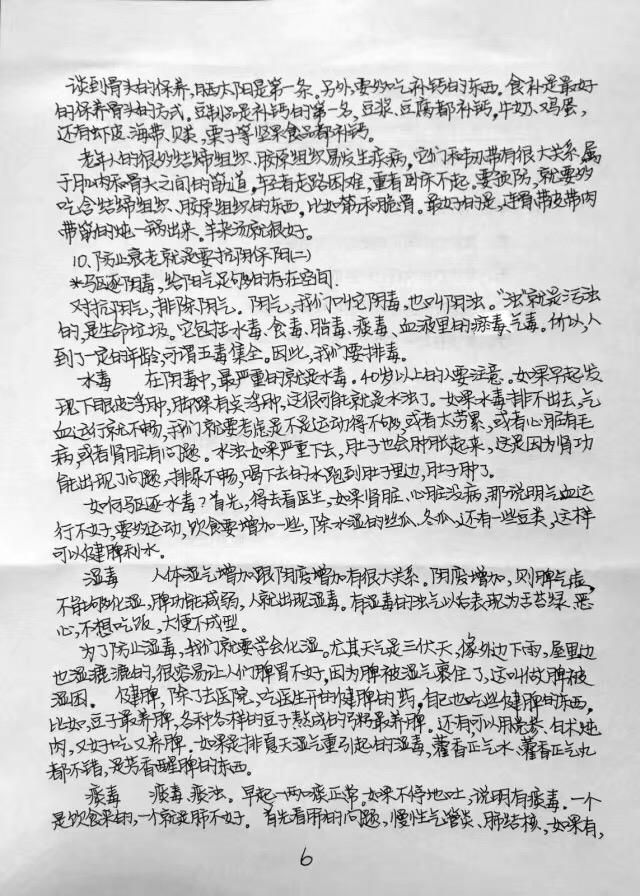 谈到骨头的保养,晒太阳是第一条。另外,要多吃补钙的东西。食补是最好
的保养骨头的方式。豆制品是补钙的第一名,豆浆、豆腐都补钙,牛奶、鸡蛋,
还有虾皮、海带、贝类,栗子等坚果食品都补钙。
老年人的很多结缔组织、胶原组织易发生疾病,它们和韧带有很大关系,属
于肌肉和骨头之间的筋道,轻者走路困难,重者卧床不起。要预防,就要多
吃含结缔组织、胶原组织的东西,比如蹄筋和脆骨。最好的是,连骨带皮带肉
带筋的炖一锅出来。羊杂汤就很好。
10.防止衰老就是要抗阴保阳(二)
*驱逐阴毒,给阳气足够的存在空间.
对抗阴气,排除阴气。阴气,我们叫它阴毒,也叫阴浊。“浊”就是污浊
的,是生命垃圾。它包括水毒、食毒、脂毒、痰毒、血液里的瘀毒、气毒。所以,人
到了一定的年龄,可谓五毒俱全。因此,我们要排毒。
水毒 在阴毒中,最严重的就是水毒。40岁以上的人要注意。如果早起发
现下眼皮浮肿,脚踝有点浮肿,这很可能就是水浊了。如果水毒排不出去,气
血运行就不畅,我们就要考虑是不是运动得不够,或者太劳累,或者心脏有毛
病,或者肾脏有问题。水浊如果严重下去,肚子也会肿胀起来,这是因为肾功
能出现了问题,排尿不畅,喝下去的水跑到肚子里边,肚子肿了。
如何驱逐水毒?首先,得去看医生,如果肾脏、心脏没病,那说明气血运
行不好,要多运动,饮食要增加一些,除水湿的丝瓜、冬瓜,还有一些豆类,这样
可以健脾利水。
湿毒 人体湿气增加跟阴废增加有很大关系。阴废增加,则脾气虚,
不能够化湿,脾功能减弱,人就出现湿毒。有湿毒的浊气以后表现为舌苔绿、恶
心,不想吃饭,大便不成型。
为了防止湿毒,我们就要学会化湿。尤其天气是三伏天,像外边下雨,屋里边
也湿漉漉的,很容易让人们脾胃不好,因为脾被湿气裹住了,这叫做脾被
湿困。 健脾,除了去医院,吃医生开的健脾的药,自己也吃些健脾的东西,
比如,豆子最养脾,各种各样的豆子熬成的粥最养脾。还有可以用党参、白术炖
肉,又好吃又养脾。如果是排夏天湿气重引起的湿毒,藿香正气水、藿香正气丸
都不错,是芳香醒脾的东西。
痰毒 痰毒,痰浊。早起一两口痰正常。如果不停地吐,说明有痰毒。一个
是饮食来的,一个就是肺不好。首先看肺的问题,慢性气管炎、肺结核,如果有,
6